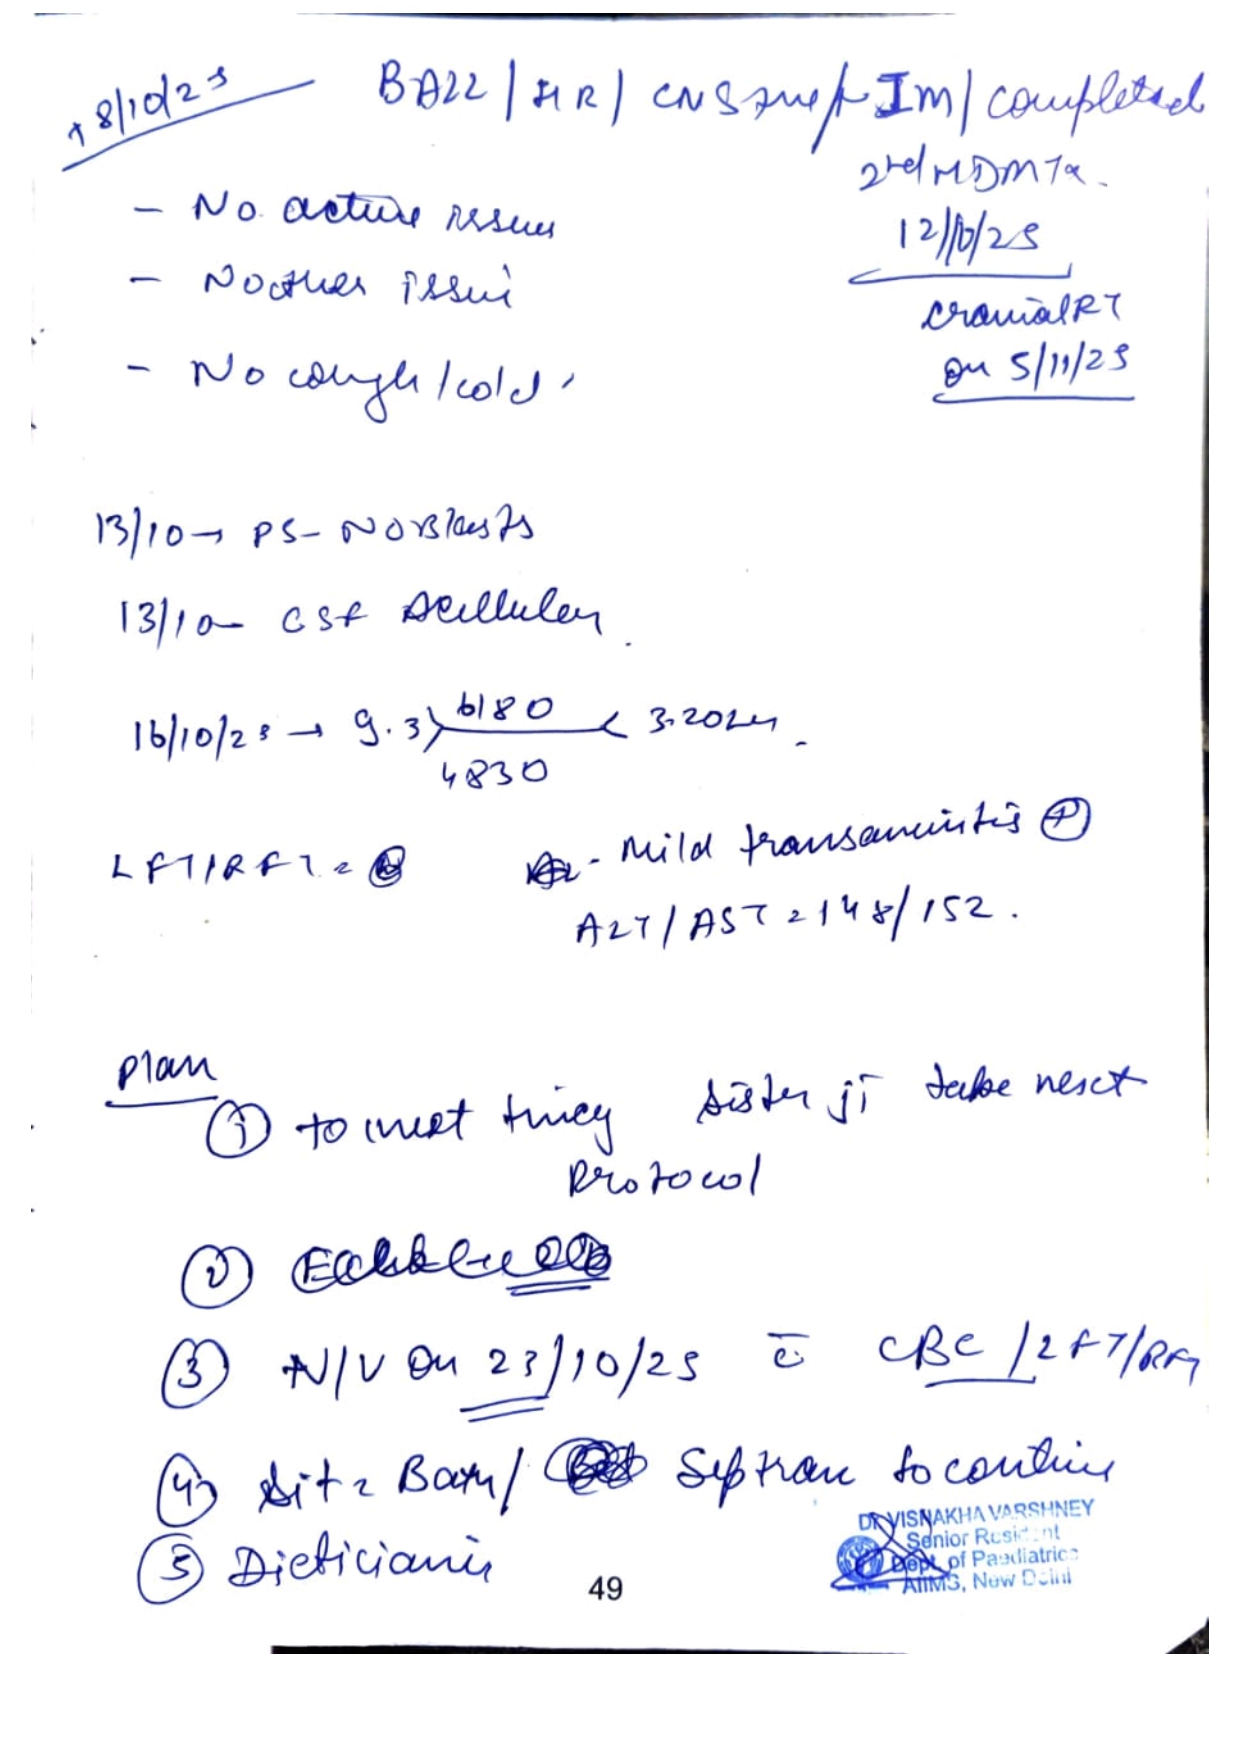 18/10/25 BALL/HR/CNS2ve/IM/completed
2nd HDMTx.
12/10/25
cranial RT
on 5/11/25
- No active issues
- No other issue
- No cough/cold
13/10 → PS - NO Blasts
13/10 - CSF Acellular
16/10/25 → 9.3 6180 3.20L
4830
LFT/RFT =
- Mild transaminitis +
ALT/AST = 148/152.
Plan
1 to meet sister ji take next
Protocol
2
3 N/V on 23/10/25 c̄ CBC/LFT/RFT
4 Sitz Bath/ Septran to continue
5 Dietician
DR VISHAKHA VARSHNEY
Senior Resident
Dept. of Paediatrics
AIIMS, New Delhi
49